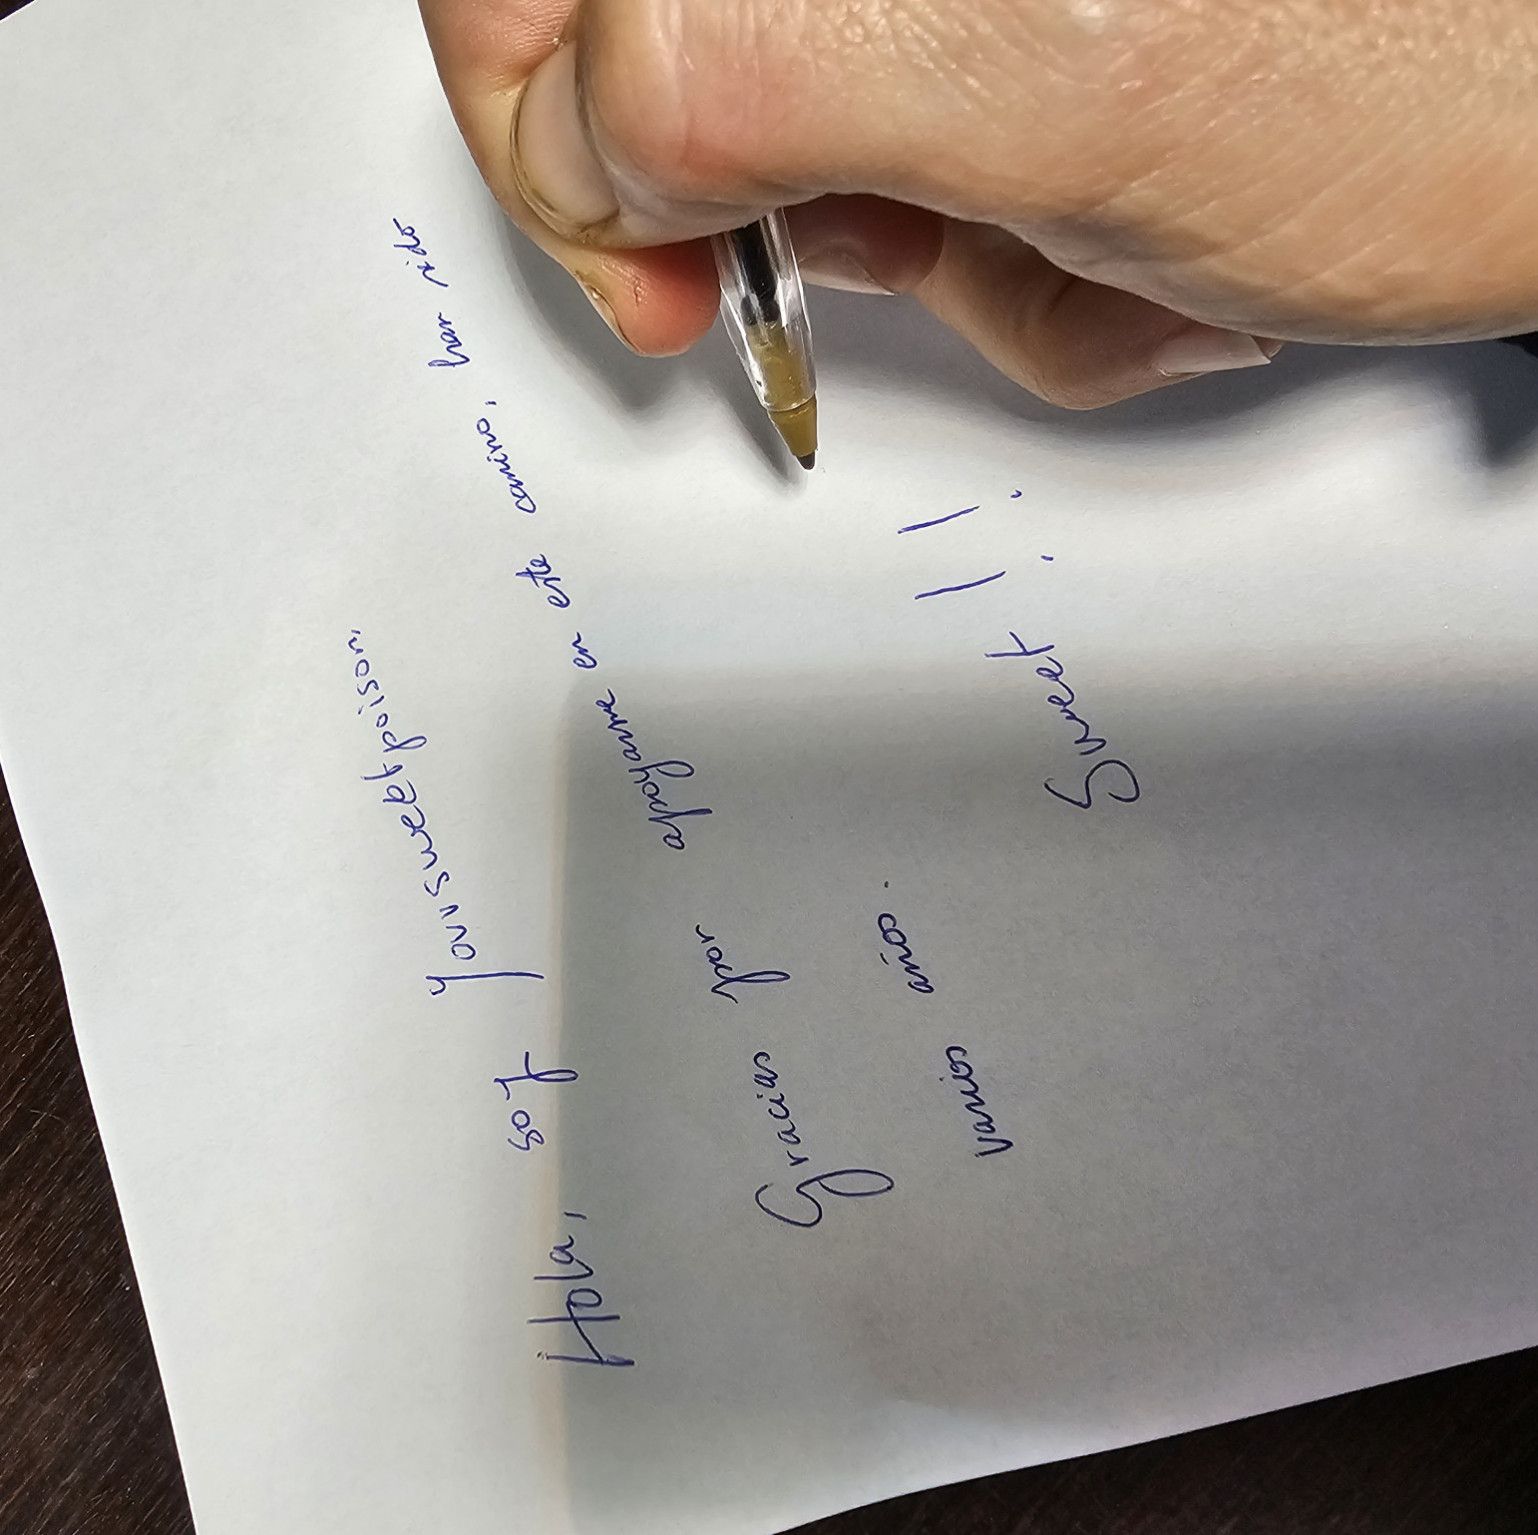 Hola, soy Yoursweetpoison,
Gracias por apoyarme en este camino, han sido
varios años.
Sweet !!